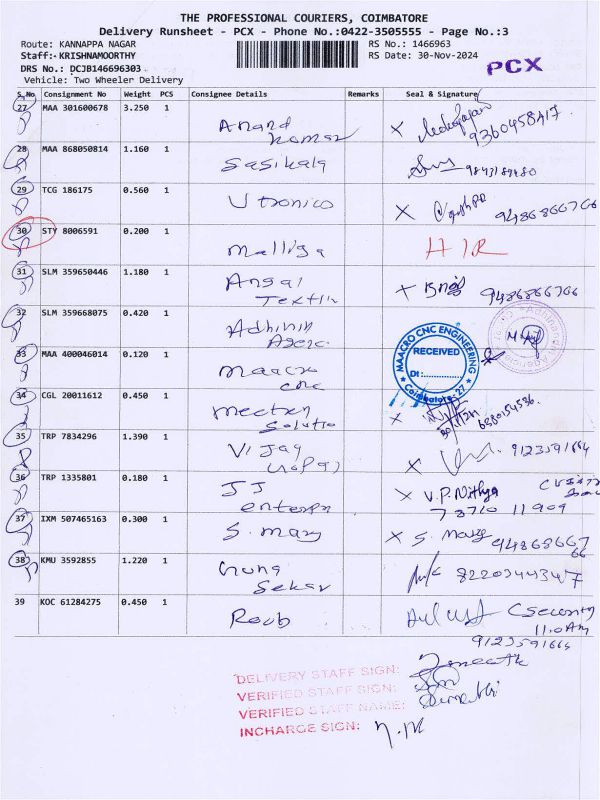 THE PROFESSIONAL COURIERS, COIMBATORE
Delivery Runsheet - PCX - Phone No.:0422-3505555 - Page No.:3
Route: KANNAPPA NAGAR RS No.: 1466963
Staff:-KRISHNAMOORTHY RS Date: 30-Nov-2024
DRS No.: DCJB146696303 PCX
Vehicle: Two Wheeler Delivery
S.No Consignment No Weight PCS Consignee Details Remarks Seal & Signature
27 MAA 301600678 3.250 1 Anand 9360458417
Komar
28 MAA 868050814 1.160 1 Sasikala
29 TCG 186175 0.560 1 Utronico
30 STY 8006591 0.200 1 Malliga
31 SLM 359650446 1.180 1 Ansal
Textiln
32 SLM 359668075 0.420 1 Adhinin
33 MAA 400046014 0.120 1 Maacro
cnc
MAACRO CNC ENGINEERING
RECEIVED
Dt:
Coimbatore-27
34 CGL 20011612 0.450 1
Solutio
35 TRP 7834296 1.390 1 Vijay 9123591664
36 TRP 1335801 0.180 1 JJ V.P. Nithya
enterpr 73710 11909
37 IXM 507465163 0.300 1 S. mary S. Mary
38 KMU 3592855 1.220 1 Guna
Sekar
39 KOC 61284275 0.450 1 Roub Security
11.0 Am
9123591664
DELIVERY STAFF SIGN:
VERIFIED STAFF SIGN:
VERIFIED STAFF NAME:
INCHARGE SIGN: